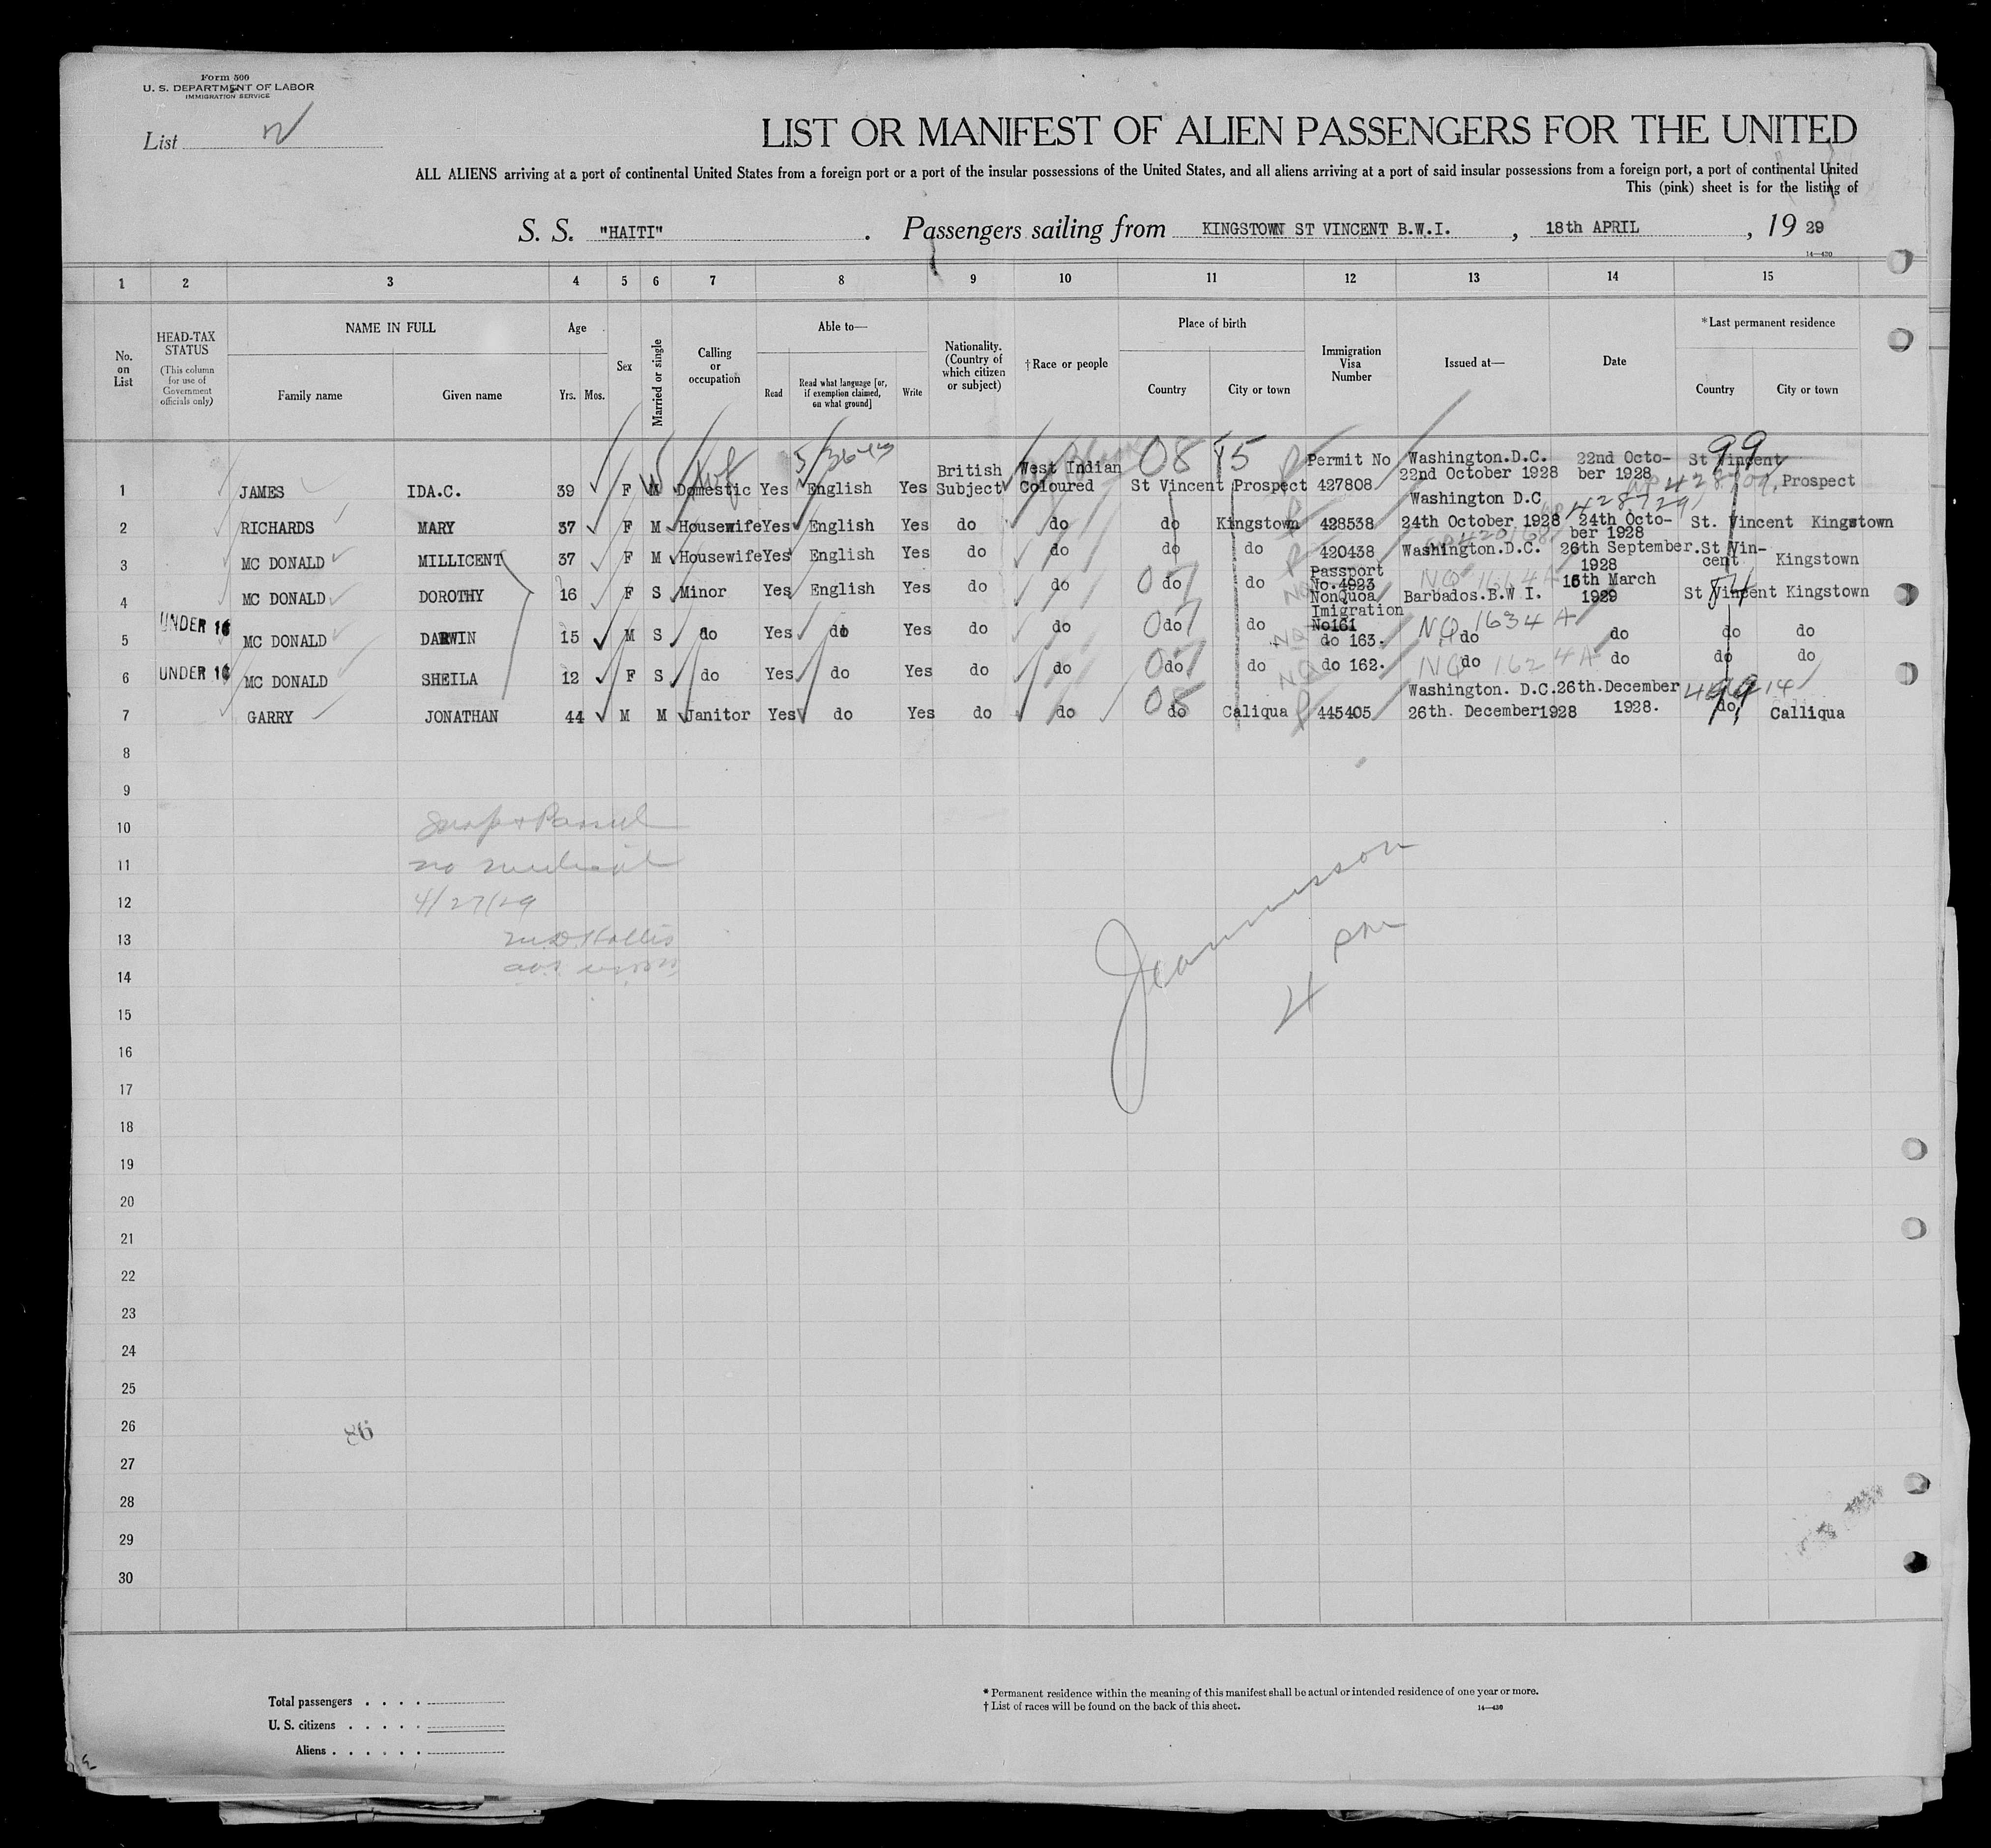 Form 500
U. S. DEPARTMENT OF LABOR
IMMIGRATION SERVICE
List
LIST OR MANIFEST OF ALIEN PASSENGERS FOR THE UNITED
ALL ALIENS arriving at a port of continental United States from a foreign port or a port of the insular possessions of the United States, and all aliens arriving at a port of said insular possessions from a foreign port, a port of continental United
This (pink) sheet is for the listing of
S. S. "HAITI" . Passengers sailing from KINGSTOWN ST VINCENT B.W.I. , 18th APRIL , 19 29
14—430
1 2 3 4 5 6 7 8 9 10 11 12 13 14 15
No. on List
HEAD-TAX STATUS
(This column for use of Government officials only)
NAME IN FULL
Family name Given name
Age
Yrs. Mos.
Sex
Married or single
Calling or occupation
Able to—
Read
Read what language [or, if exemption claimed, on what ground]
Write
Nationality. (Country of which citizen or subject)
†Race or people
Place of birth
Country City or town
Immigration Visa Number
Issued at—
Date
*Last permanent residence
Country City or town
1 JAMES IDA.C. 39 F M Domestic Yes English Yes British Subject West Indian Coloured St Vincent Prospect Permit No 427808 Washington.D.C. 22nd October 1928 22nd Octo- ber 1928 St Vincent Prospect
08 15 99
2 RICHARDS MARY 37 F M Housewife Yes English Yes do do do Kingstown 428538 Washington D.C 24th October 1928 24th Octo- ber 1928 St. Vincent Kingstown
3 MC DONALD MILLICENT 37 F M Housewife Yes English Yes do do do do 420438 Washington.D.C. 26th September. 1928 St Vin- cent Kingstown
4 MC DONALD DOROTHY 16 F S Minor Yes English Yes do do do do Passport No.4923 NonQuoa Imigration No161 Barbados.B.W I. 16th March 1929 St Vincent Kingstown
UNDER 16
5 MC DONALD DARWIN 15 M S do Yes do Yes do do do do do 163. do do do do
NQ 1634 A
UNDER 16
6 MC DONALD SHEILA 12 F S do Yes do Yes do do do do do 162. do do do do
NQ 1624 A
7 GARRY JONATHAN 44 M M Janitor Yes do Yes do do do Caliqua 445405 Washington. D.C. 26th. December1928 26th.December 1928. do Calliqua
8
9
10
11
no medical
12
4/27/29
13
14
15
4 pm
16
17
18
19
20
21
22
23
24
25
26
86
27
28
29
30
Total passengers
U. S. citizens
Aliens
* Permanent residence within the meaning of this manifest shall be actual or intended residence of one year or more.
† List of races will be found on the back of this sheet.
14—430